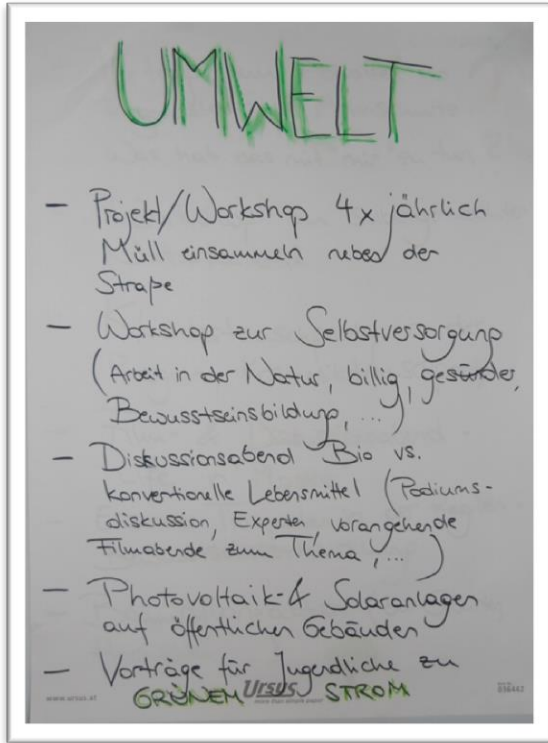 UMWELT
- Projekt/Workshop 4x jährlich
Müll einsammeln neben der
Straße
- Workshop zur Selbstversorgung
(Arbeit in der Natur, billig, gesünder,
Bewusstseinsbildung, ...)
- Diskussionsabend Bio vs.
konventionelle Lebensmittel (Podiums-
diskussion, Experten, vorangehende
Filmabende zum Thema, ...)
- Photovoltaik- & Solaranlagen
auf öffentlichen Gebäuden
- Vorträge für Jugendliche zu
GRÜNEM STROM
www.ursus.at
Ursus
more than simple paper